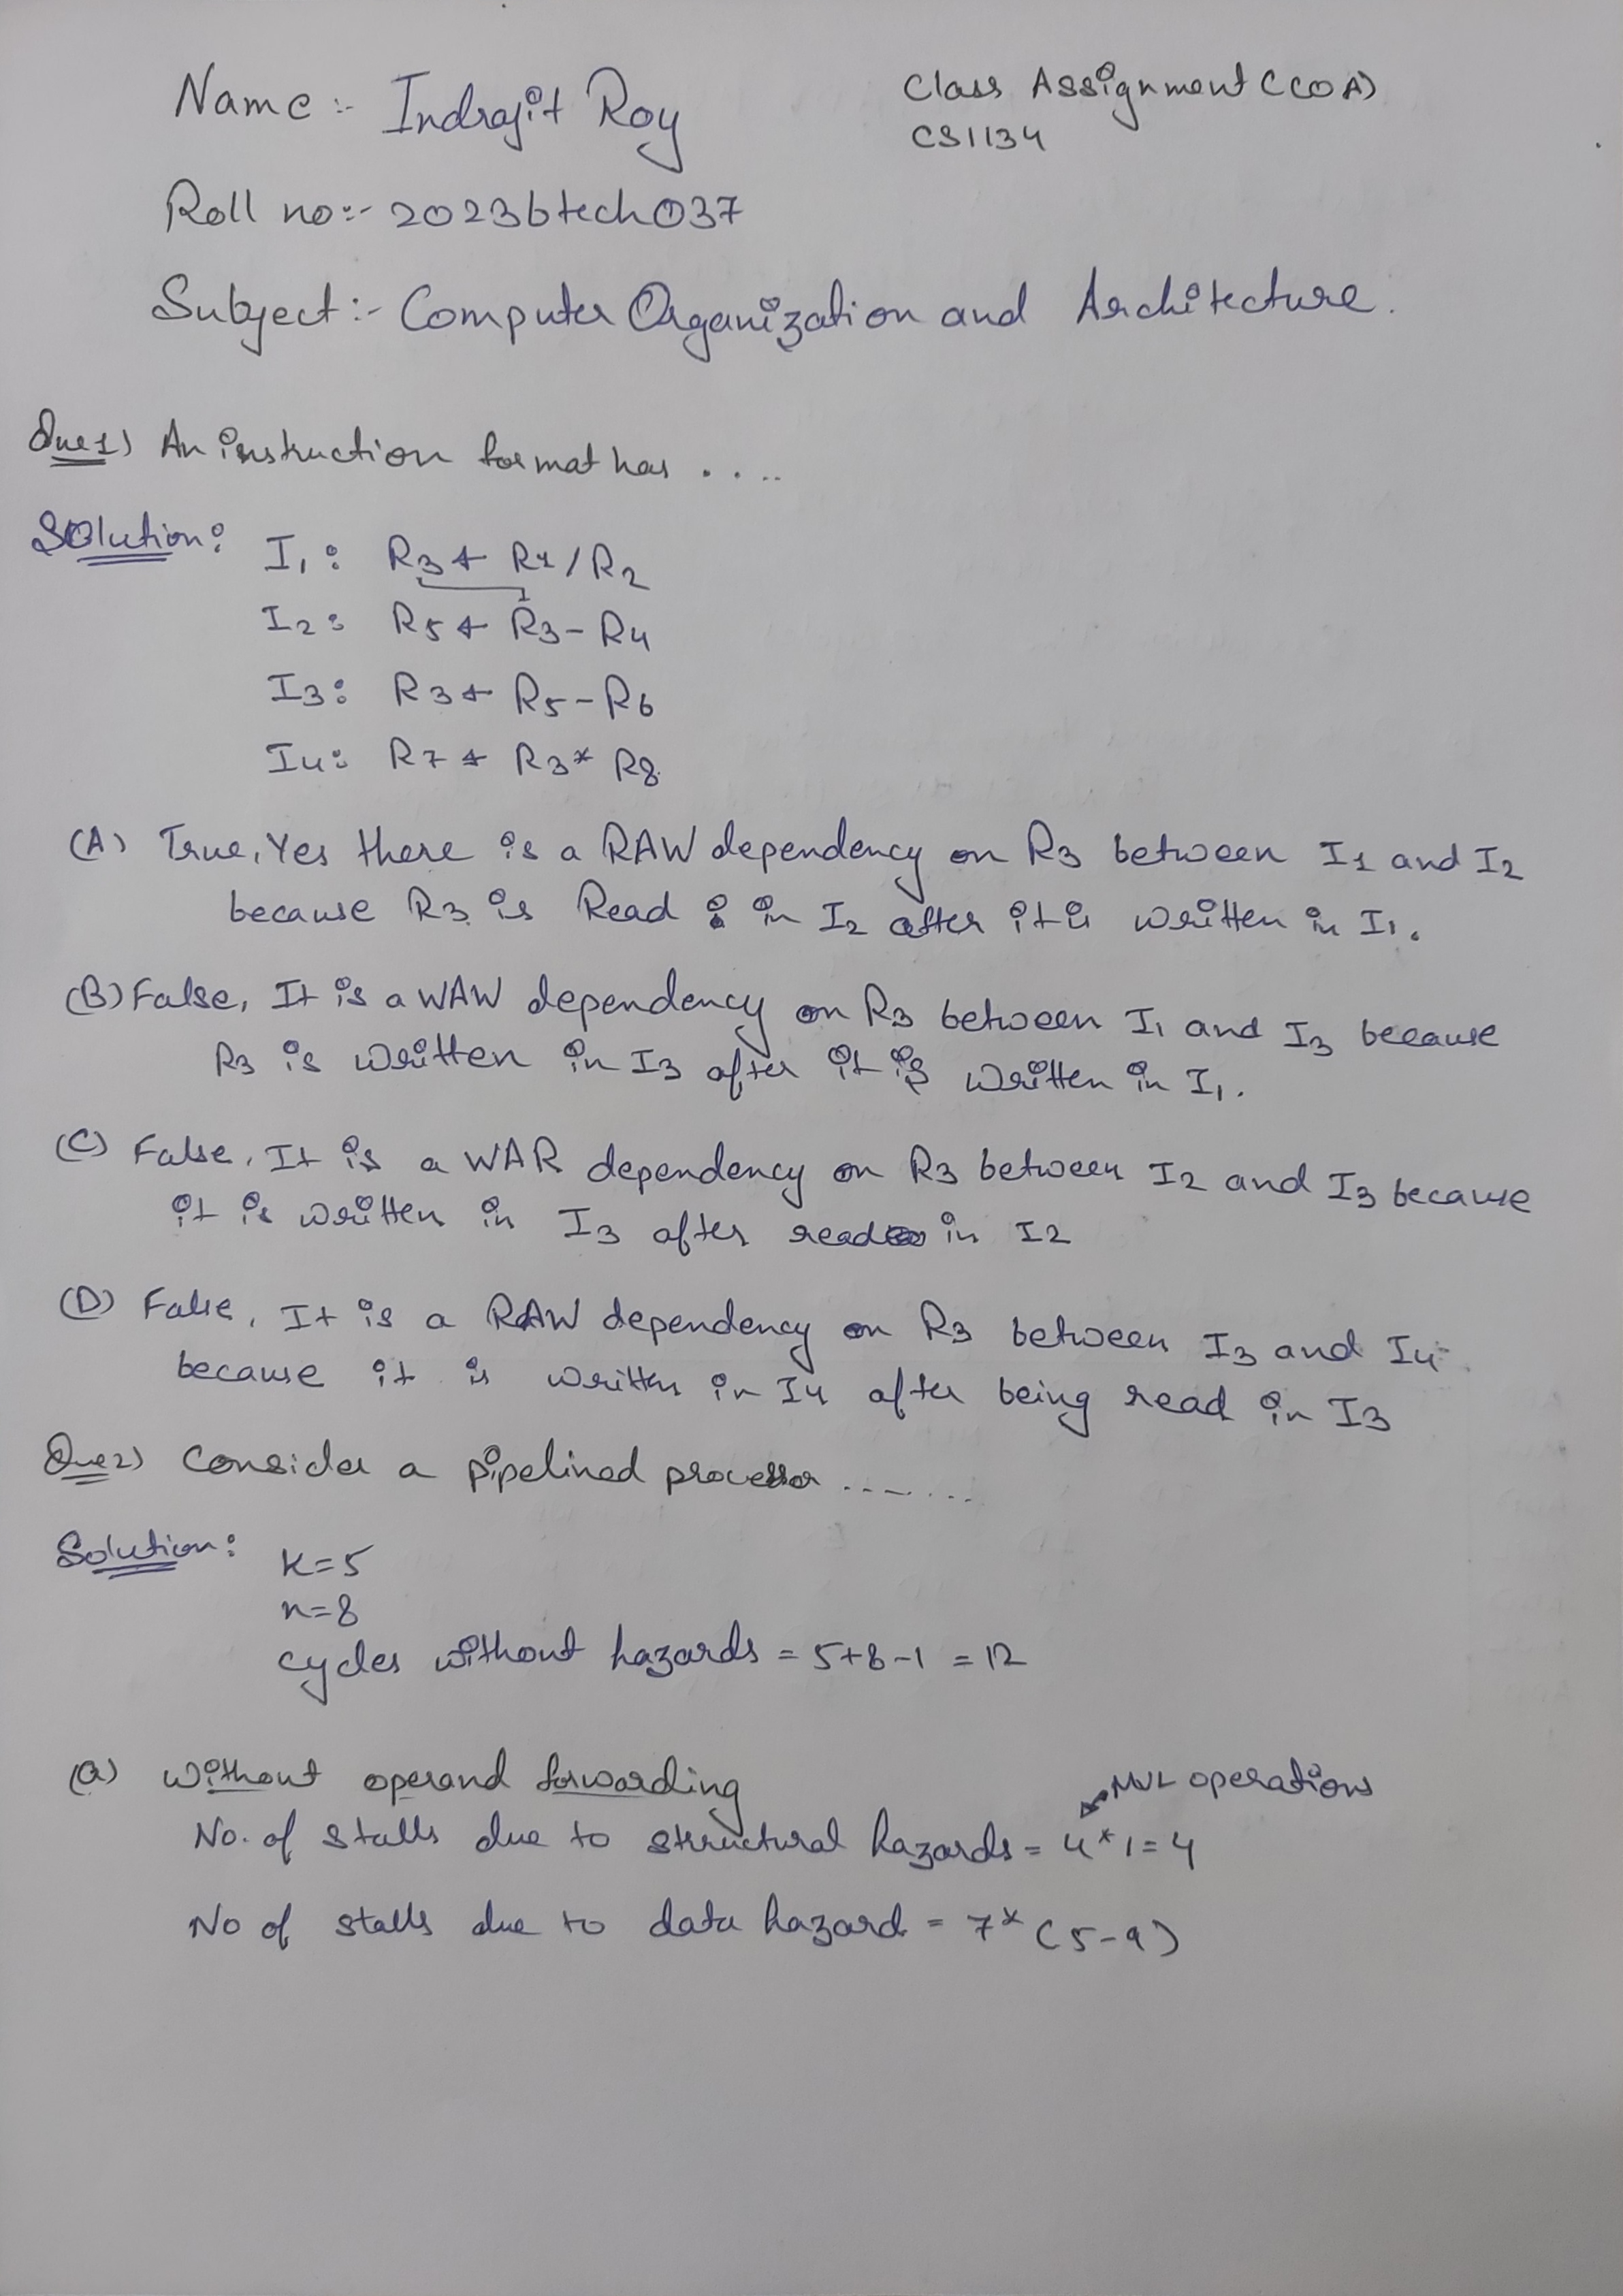 Name :- Indrajit Roy
Class Assignment (COA)
CS1134
Roll no:- 2023btech037
Subject:- Computer Organization and Architecture.
Que1) An instruction format has ....
Solution:
I1: R3 ← R1/R2
I2: R5 ← R3-R4
I3: R3 ← R5-R6
I4: R7 ← R3* R8
(A) True, Yes there is a RAW dependency on R3 between I1 and I2
because R3 is Read in I2 after it is written in I1.
(B) False, It is a WAW dependency on R3 between I1 and I3 because
R3 is written in I3 after it is written in I1.
(C) False, It is a WAR dependency on R3 between I2 and I3 because
it is written in I3 after read in I2
(D) False, It is a RAW dependency on R3 between I3 and I4.
because it is written in I4 after being read in I3
Que2) Consider a pipelined processor .......
Solution:
K=5
n=8
cycles without hazards = 5+8-1 = 12
(a) Without operand forwarding
MUL operations
No. of stalls due to structural hazards = 4*1=4
No of stalls due to data hazard = 7* (5-9)